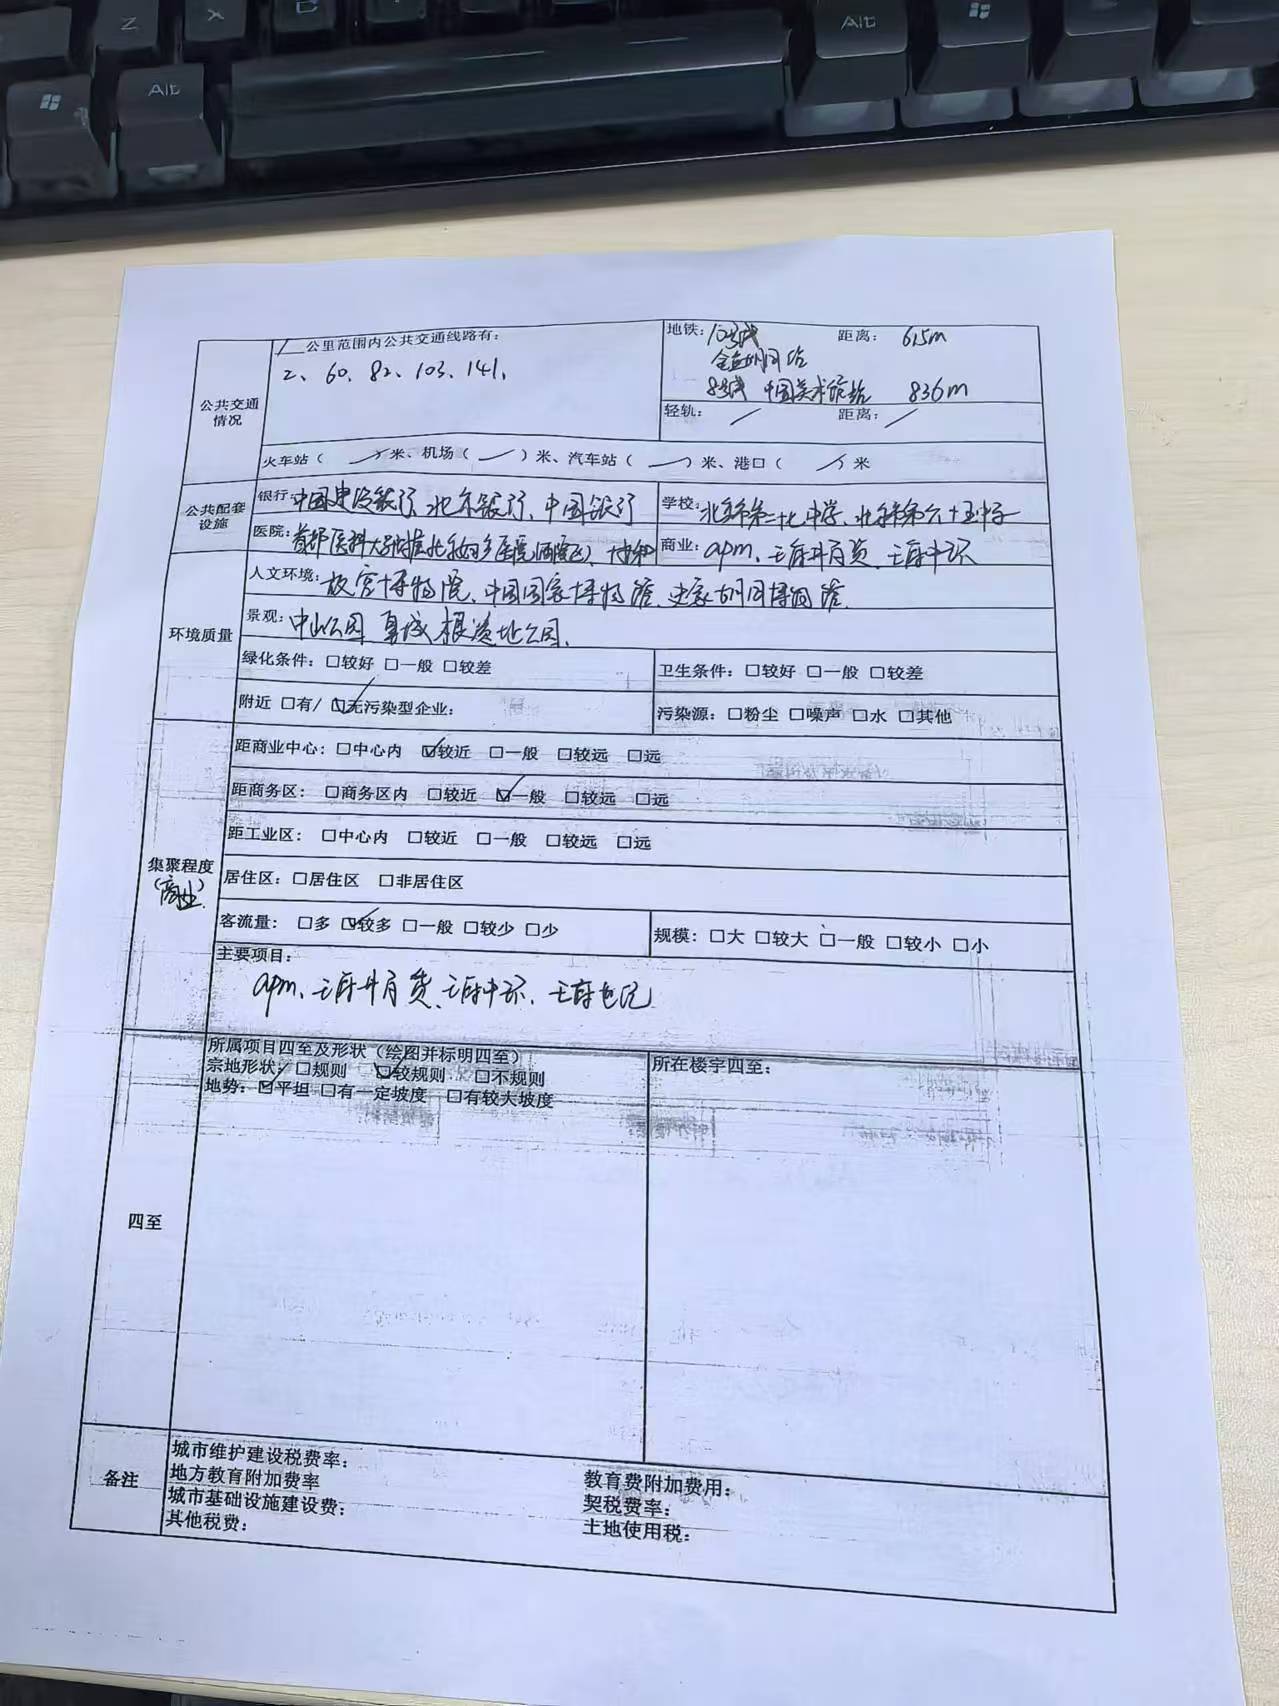 Z X C Alt
Alt
公共交通情况
1公里范围内公共交通线路有:
2、60、82、103、141、
地铁: 距离: 615m
金鱼胡同站
8号线 中国美术馆站 836m
轻轨: / 距离: /
火车站( / )米、机场( / )米、汽车站( / )米、港口( / )米
公共配套设施
银行: 中国建设银行、北京银行、中国银行
学校: 北京市第二十七中学、北京市第六十五中学
医院: 首都医科大学附属北京妇产医院(西院区)、
商业: apm、王府井百货、王府中环
环境质量
人文环境: 故宫博物院、中国国家博物馆、史家胡同博物馆
景观: 中山公园 皇城根遗址公园、
绿化条件: □较好 □一般 □较差
卫生条件: □较好 □一般 □较差
附近 □有/ ☑无污染型企业:
污染源: □粉尘 □噪声 □水 □其他
集聚程度
(商业)
距商业中心: □中心内 ☑较近 □一般 □较远 □远
距商务区: □商务区内 □较近 ☑一般 □较远 □远
距工业区: □中心内 □较近 □一般 □较远 □远
居住区: □居住区 □非居住区
客流量: □多 ☑较多 □一般 □较少 □少
规模: □大 □较大 □一般 □较小 □小
主要项目:
apm、王府井百货、王府中环、王府世纪
四至
所属项目四至及形状(绘图并标明四至)
宗地形状: □规则 ☑较规则 □不规则
地势: ☑平坦 □有一定坡度 □有较大坡度
所在楼宇四至:
备注
城市维护建设税费率:
地方教育附加费率
教育费附加费用:
城市基础设施建设费:
契税费率:
其他税费:
土地使用税: